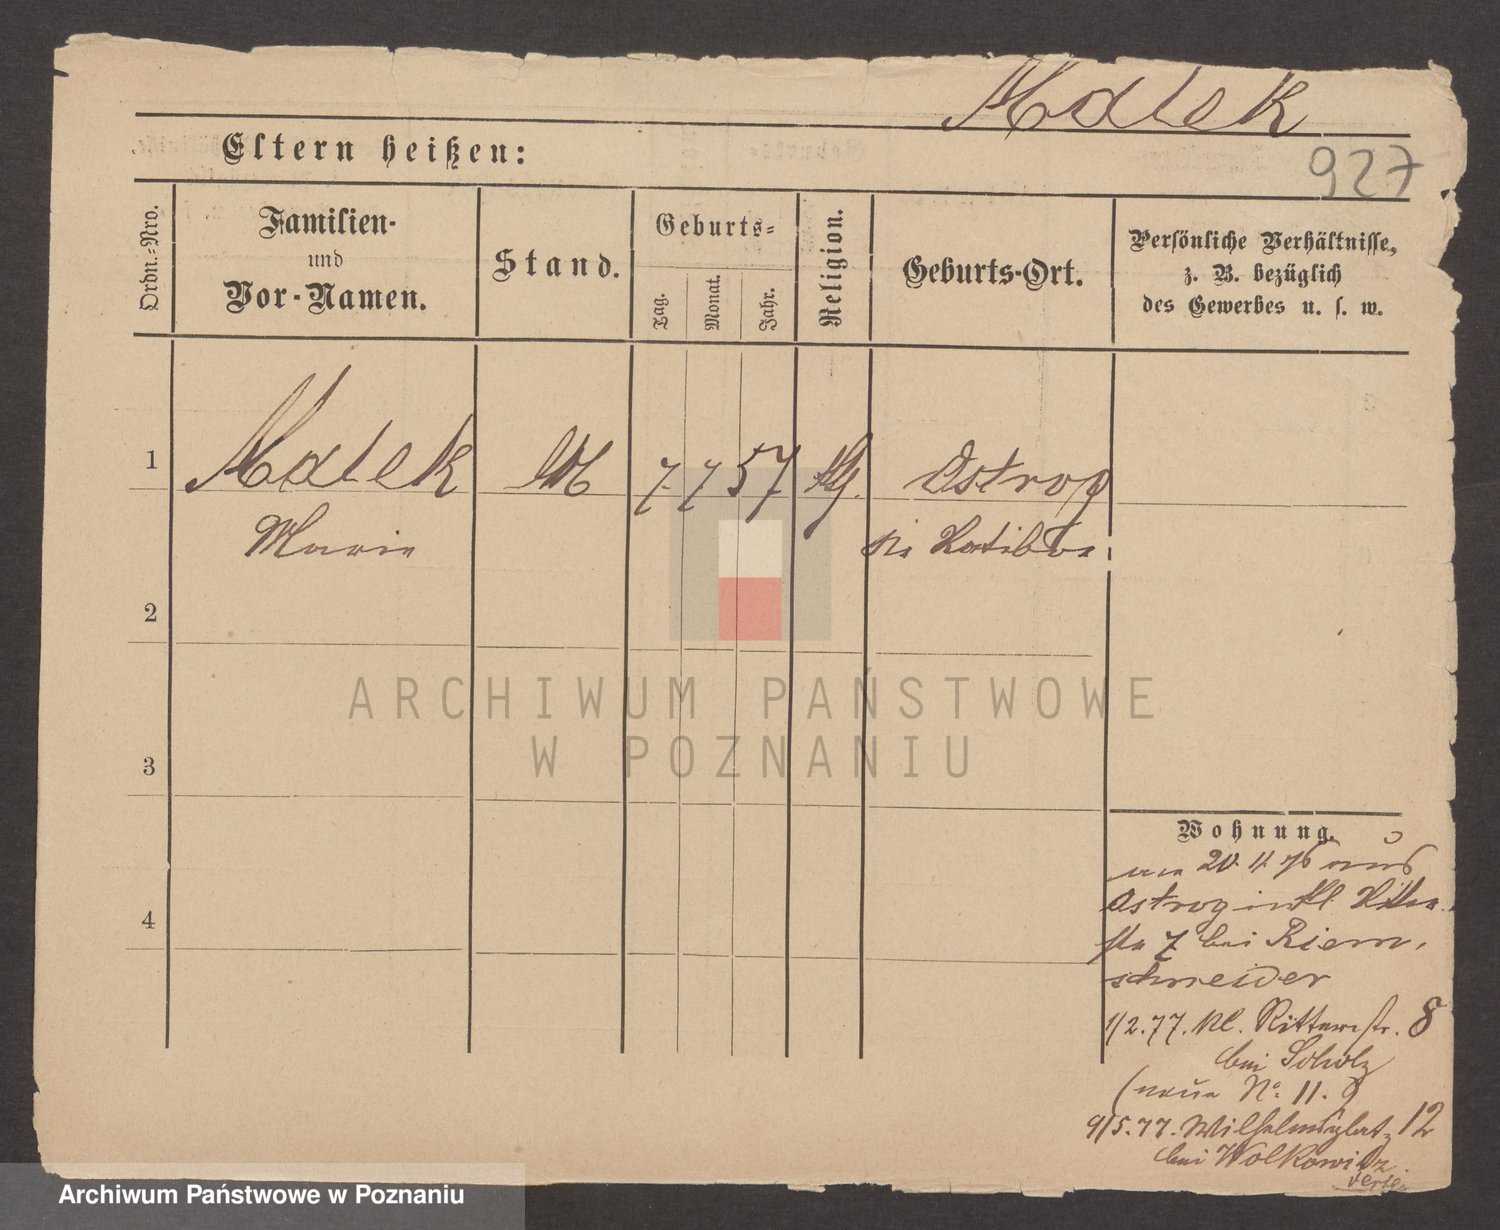 Malek
927
Eltern heißen:
Ordn.-Nro.
Familien-
und
Vor-Namen.
Stand.
Geburts-
Tag.
Monat.
Jahr.
Religion.
Geburts-Ort.
Persönliche Verhältnisse,
z. B. bezüglich
des Gewerbes u. s. w.
1
Malek
M
7 7 57
Ostrog
Marie
Ratibor
2
3
4
ARCHIWUM PAŃSTWOWE
W POZNANIU
Wohnung.
20. 11. 76 aus
Ostrog in Kl. Ritter
str 7 bei Riem,
schneider
1/2.77. Kl. Ritterstr. 8
bei Scholz
(neue No. 11.)
9/5.77. Wilhelmsplatz 12
bei Wolkowitz
Archiwum Państwowe w Poznaniu